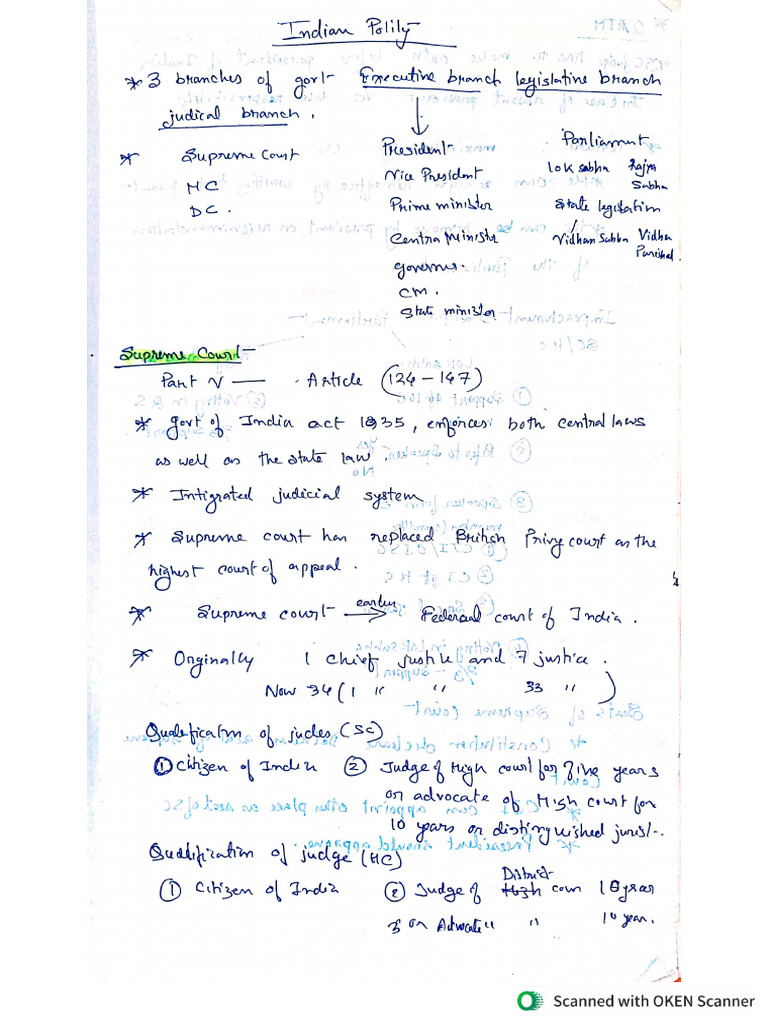 Indian Polity
* 3 branches of govt- Executive branch legislative branch
judical branch.
* Supreme Court
HC
DC.
President
Vice President
Prime minister
Centra Minister
governer.
CM.
State minister
Parliament
lok sabha Rajya Sabha
State legislation
Vidhan Sabha Vidha Parishad
Supreme Court-
Part V — Article (124-147)
* govt of India act 1935, enforces both central laws
as well as the state law.
* Intigrated judicial system
* Supreme court has replaced British Privy court as the
highest court of appeal.
* Supreme court earlier → Federal court of India.
* Orginally 1 chief justice and 7 justice.
Now 34 (1 " " 33 ")
Qualification of judes (SC)
① Citizen of India ② Judge of High court for five years
or advocate of High court for
10 years or distinguished jurist-.
Qualification of judge (HC)
① Citizen of India ② Judge of District cour 10 year
3 or Advocate " " 10 year.
Scanned with OKEN Scanner